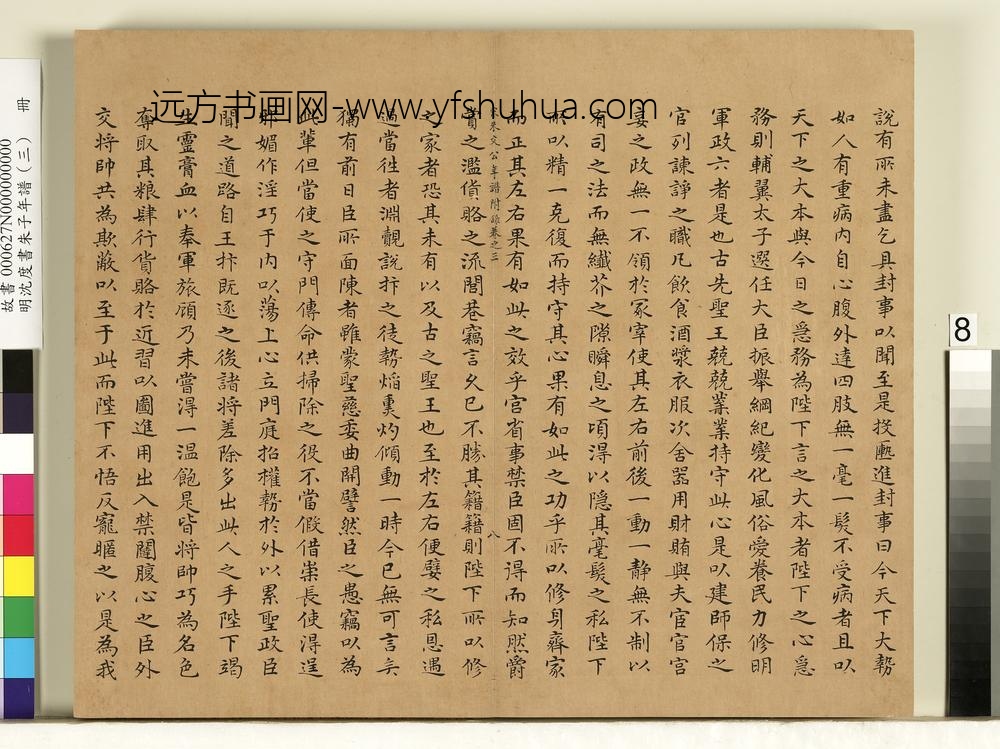 說有所未盡乞具封事以聞至是投匭進封事曰今天下大勢
如人有重病內自心腹外達四肢無一毫一髮不受病者且以
天下之大本與今日之急務為陛下言之大本者陛下之心急
務則輔翼太子選任大臣振舉綱紀變化風俗愛養民力修明
軍政六者是也古先聖王兢兢業業持守此心是以建師保之
官列諫諍之職凡飲食酒漿衣服次舍器用財賄與夫宦官宮
妾之政無一不領於冢宰使其左右前後一動一靜無不制以
有司之法而無纖芥之隙瞬息之頃得以隱其毫髮之私陛下
所以精一克復而持守其心果有如此之功乎所以修身齊家
而正其左右果有如此之效乎宮省事禁臣固不得而知然爵
朱文公年譜附錄卷之三
八
賞之濫貨賂之流閭巷竊言久已不勝其籍籍則陛下所以修
之家者恐其未有以及古之聖王也至於左右便嬖之私恩遇
過當往者淵覿說抃之徒勢焰熏灼傾動一時今已無可言矣
獨有前日臣所面陳者雖蒙聖慈委曲開譬然臣之愚竊以為
此輩但當使之守門傳命供掃除之役不當假借崇長使得逞
邪媚作淫巧于內以蕩上心立門庭招權勢於外以累聖政臣
聞之道路自王抃既逐之後諸將差除多出此人之手陛下竭
生靈膏血以奉軍旅顧乃未嘗得一溫飽是皆將帥巧為名色
奪取其粮肆行貨賂於近習以圖進用出入禁闥腹心之臣外
交將帥共為欺蔽以至于此而陛下不悟反寵暱之以是為我
远方书画网-www.yfshuhua.com
故書000627N000000000
明沈度書朱子年譜（三）　冊
8